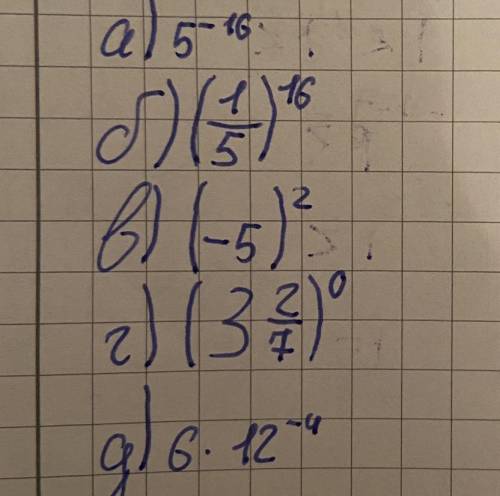 а) 5⁻¹⁶
б) (1/5)¹⁶
в) (-5)²
г) (3 2/7)⁰
д) 6 · 12⁻⁴